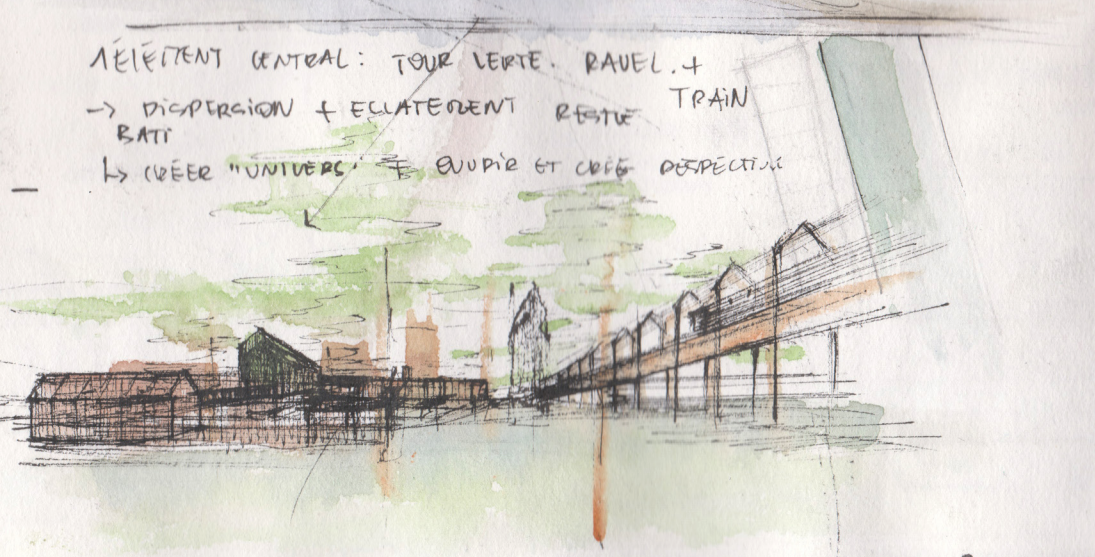 1 ÉLÉMENT CENTRAL: TOUR VERTE. RAVEL. + TRAIN
-> DISPERSION + ECLATEMENT RESTE BATI
↳ CRÉER "UNIVERS" + OUVRIR ET CRÉE PERSPECTIVE